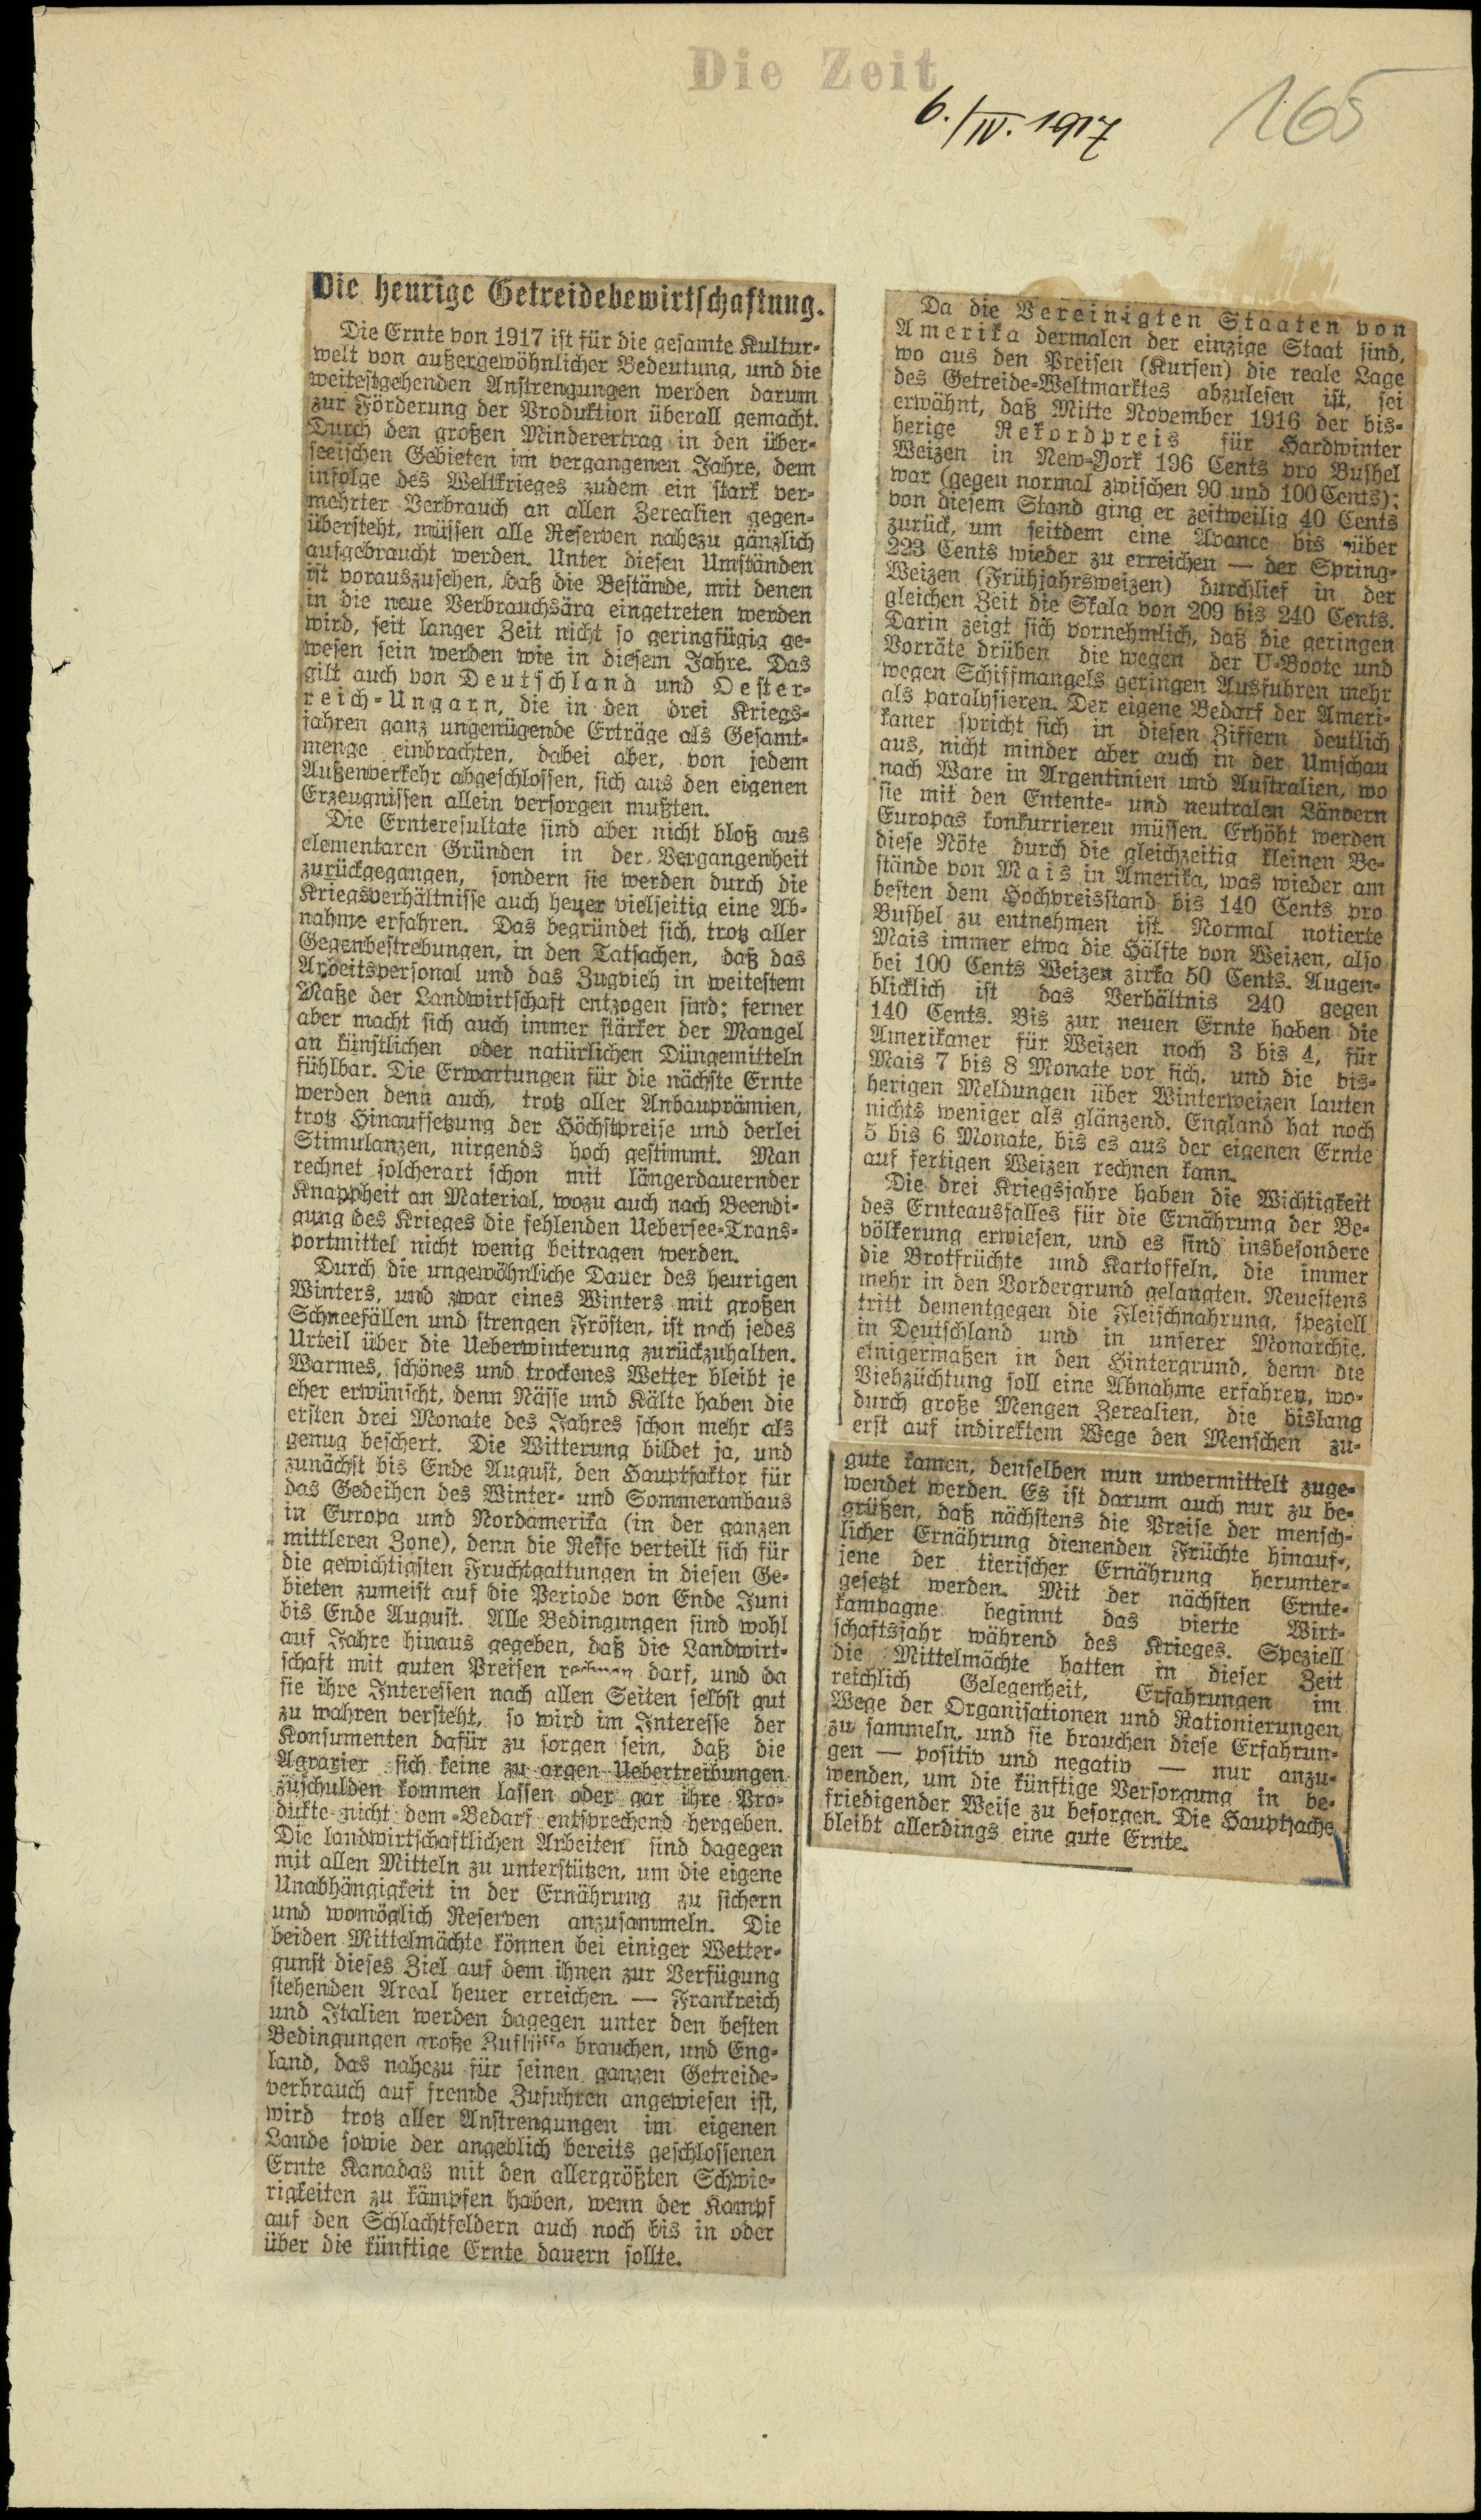 Die Zeit
6./IV. 1917
165
Die heurige Getreidebewirtschaftung.
Die Ernte von 1917 ist für die gesamte Kultur-
welt von außergewöhnlicher Bedeutung, und die
weitestgehenden Anstrengungen werden darum
zur Förderung der Produktion überall gemacht.
Durch den großen Minderertrag in den über-
seeischen Gebieten im vergangenen Jahre, dem
infolge des Weltkrieges zudem ein stark ver-
mehrter Verbrauch an allen Zerealien gegen-
übersteht, müssen alle Reserven nahezu gänzlich
aufgebraucht werden. Unter diesen Umständen
ist vorauszusehen, daß die Bestände, mit denen
in die neue Verbrauchsära eingetreten werden
wird, seit langer Zeit nicht so geringfügig ge-
wesen sein werden wie in diesem Jahre. Das
gilt auch von Deutschland und Oester-
reich-Ungarn, die in den drei Kriegs-
jahren ganz ungenügende Erträge als Gesamt-
menge einbrachten, dabei aber, von jedem
Außenverkehr abgeschlossen, sich aus den eigenen
Erzeugnissen allein versorgen mußten.
Die Ernteresultate sind aber nicht bloß aus
elementaren Gründen in der Vergangenheit
zurückgegangen, sondern sie werden durch die
Kriegsverhältnisse auch heuer vielseitig eine Ab-
nahme erfahren. Das begründet sich, trotz aller
Gegenbestrebungen, in den Tatsachen, daß das
Arbeitspersonal und das Zugvieh in weitestem
Maße der Landwirtschaft entzogen sind; ferner
aber macht sich auch immer stärker der Mangel
an künstlichen oder natürlichen Düngemitteln
fühlbar. Die Erwartungen für die nächste Ernte
werden denn auch, trotz aller Anbauprämien,
trotz Hinaufsetzung der Höchstpreise und derlei
Stimulanzen, nirgends hoch gestimmt. Man
rechnet solcherart schon mit längerdauernder
Knappheit an Material, wozu auch nach Beendi-
gung des Krieges die fehlenden Uebersee-Trans-
portmittel nicht wenig beitragen werden.
Durch die ungewöhnliche Dauer des heurigen
Winters, und zwar eines Winters mit großen
Schneefällen und strengen Frösten, ist noch jedes
Urteil über die Ueberwinterung zurückzuhalten.
Warmes, schönes und trockenes Wetter bleibt je
eher erwünscht, denn Nässe und Kälte haben die
ersten drei Monate des Jahres schon mehr als
genug beschert. Die Witterung bildet ja, und
zunächst bis Ende August, den Hauptfaktor für
das Gedeihen des Winter- und Sommeranbaus
in Europa und Nordamerika (in der ganzen
mittleren Zone), denn die Reife verteilt sich für
die gewichtigsten Fruchtgattungen in diesen Ge-
bieten zumeist auf die Periode von Ende Juni
bis Ende August. Alle Bedingungen sind wohl
auf Jahre hinaus gegeben, daß die Landwirt-
schaft mit guten Preisen rechnen darf, und da
sie ihre Interessen nach allen Seiten selbst gut
zu wahren versteht, so wird im Interesse der
Konsumenten dafür zu sorgen sein, daß die
Agrarier sich keine zu argen Uebertreibungen
zuschulden kommen lassen oder gar ihre Pro-
dukte nicht dem Bedarf entsprechend hergeben.
Die landwirtschaftlichen Arbeiten sind dagegen
mit allen Mitteln zu unterstützen, um die eigene
Unabhängigkeit in der Ernährung zu sichern
und womöglich Reserven anzusammeln. Die
beiden Mittelmächte können bei einiger Wetter-
gunst dieses Ziel auf dem ihnen zur Verfügung
stehenden Areal heuer erreichen. — Frankreich
und Italien werden dagegen unter den besten
Bedingungen große brauchen, und Eng-
land, das nahezu für seinen ganzen Getreide-
verbrauch auf fremde Zufuhren angewiesen ist,
wird trotz aller Anstrengungen im eigenen
Lande sowie der angeblich bereits geschlossenen
Ernte Kanadas mit den allergrößten Schwie-
rigkeiten zu kämpfen haben, wenn der Kampf
auf den Schlachtfeldern auch noch bis in oder
über die künftige Ernte dauern sollte.
Da die Vereinigten Staaten von
Amerika dermalen der einzige Staat sind,
wo aus den Preisen (Kursen) die reale Lage
des Getreide-Weltmarktes abzulesen ist, sei
erwähnt, daß Mitte November 1916 der bis-
herige Rekordpreis für Hardwinter
Weizen in New-York 196 Cents pro Bushel
war (gegen normal zwischen 90 und 100 Cents);
von diesem Stand ging er zeitweilig 40 Cents
zurück, um seitdem eine Avance bis über
223 Cents wieder zu erreichen — der Spring-
Weizen (Frühjahrsweizen) durchlief in der
gleichen Zeit die Skala von 209 bis 240 Cents.
Darin zeigt sich vornehmlich, daß die geringen
Vorräte drüben die wegen der U-Boote und
wegen Schiffmangels geringen Ausfuhren mehr
als paralysieren. Der eigene Bedarf der Ameri-
kaner spricht sich in diesen Ziffern deutlich
aus, nicht minder aber auch in der Umschau
nach Ware in Argentinien und Australien, wo
sie mit den Entente- und neutralen Ländern
Europas konkurrieren müssen. Erhöht werden
diese Nöte durch die gleichzeitig kleinen Be-
stände von Mais in Amerika, was wieder am
besten dem Hochpreisstand bis 140 Cents pro
Bushel zu entnehmen ist. Normal notierte
Mais immer etwa die Hälfte von Weizen, also
bei 100 Cents Weizen zirka 50 Cents. Augen-
blicklich ist das Verhältnis 240 gegen
140 Cents. Bis zur neuen Ernte haben die
Amerikaner für Weizen noch 3 bis 4, für
Mais 7 bis 8 Monate vor sich, und die bis-
herigen Meldungen über Winterweizen lauten
nichts weniger als glänzend. England hat noch
5 bis 6 Monate, bis es aus der eigenen Ernte
auf fertigen Weizen rechnen kann.
Die drei Kriegsjahre haben die Wichtigkeit
des Ernteausfalles für die Ernährung der Be-
völkerung erwiesen, und es sind insbesondere
die Brotfrüchte und Kartoffeln, die immer
mehr in den Vordergrund gelangten. Neuestens
tritt dementgegen die Fleischnahrung, speziell
in Deutschland und in unserer Monarchie,
einigermaßen in den Hintergrund, denn die
Viehzüchtung soll eine Abnahme erfahren, wo-
durch große Mengen Zerealien, die bislang
erst auf indirektem Wege den Menschen zu-
gute kamen, denselben nun unvermittelt zuge-
wendet werden. Es ist darum auch nur zu be-
grüßen, daß nächstens die Preise der mensch-
licher Ernährung dienenden Früchte hinauf-,
jene der tierischer Ernährung herunter-
gesetzt werden. Mit der nächsten Ernte-
kampagne beginnt das vierte Wirt-
schaftsjahr während des Krieges. Speziell
die Mittelmächte hatten in dieser Zeit
reichlich Gelegenheit, Erfahrungen im
Wege der Organisationen und Rationierungen
zu sammeln, und sie brauchen diese Erfahrun-
gen — positiv und negativ — nur anzu-
wenden, um die künftige Versorgung in be-
friedigender Weise zu besorgen. Die Hauptsache
bleibt allerdings eine gute Ernte.